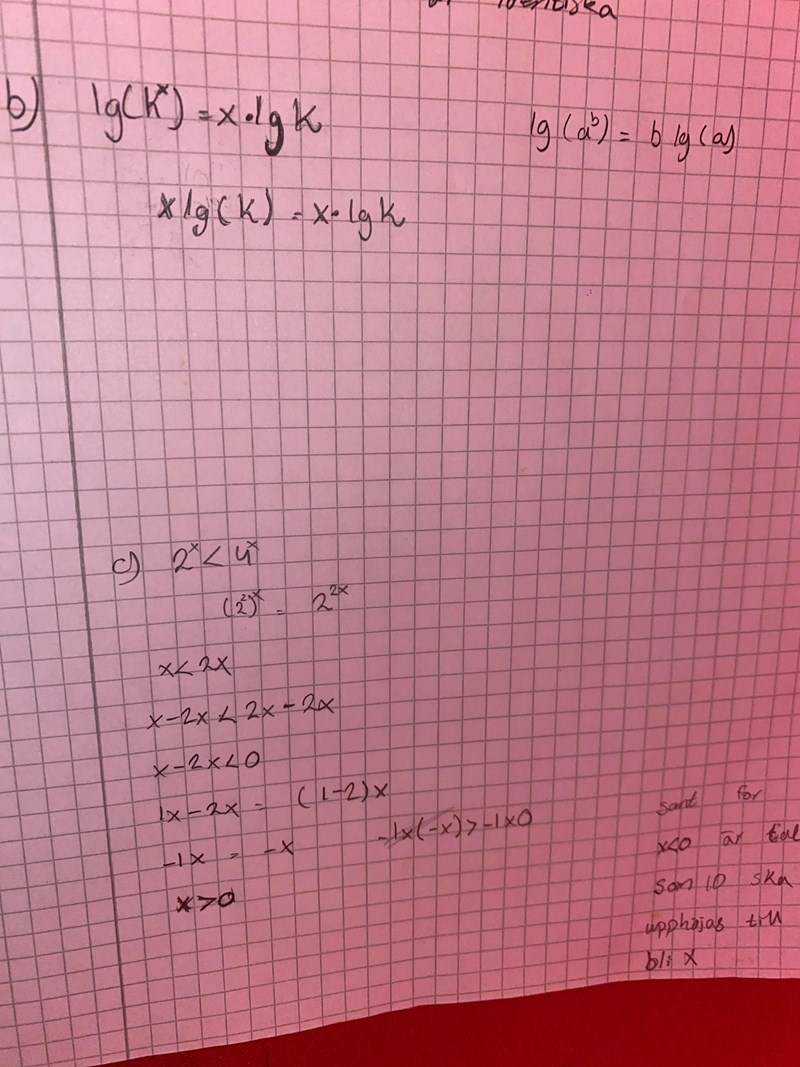 identiska
b) lg(k^x) = x·lg k
lg(a^b) = b lg(a)
x lg(k) = x·lg k
c) 2^x < 4^x
(2^2)^x = 2^(2x)
x < 2x
x-2x < 2x-2x
x-2x<0
1x-2x = (1-2)x
-1x = -x
-1x(-x)>-1x0
x>0
sant for
x<0 är tal
som 10 ska
upphöjas till
bli x